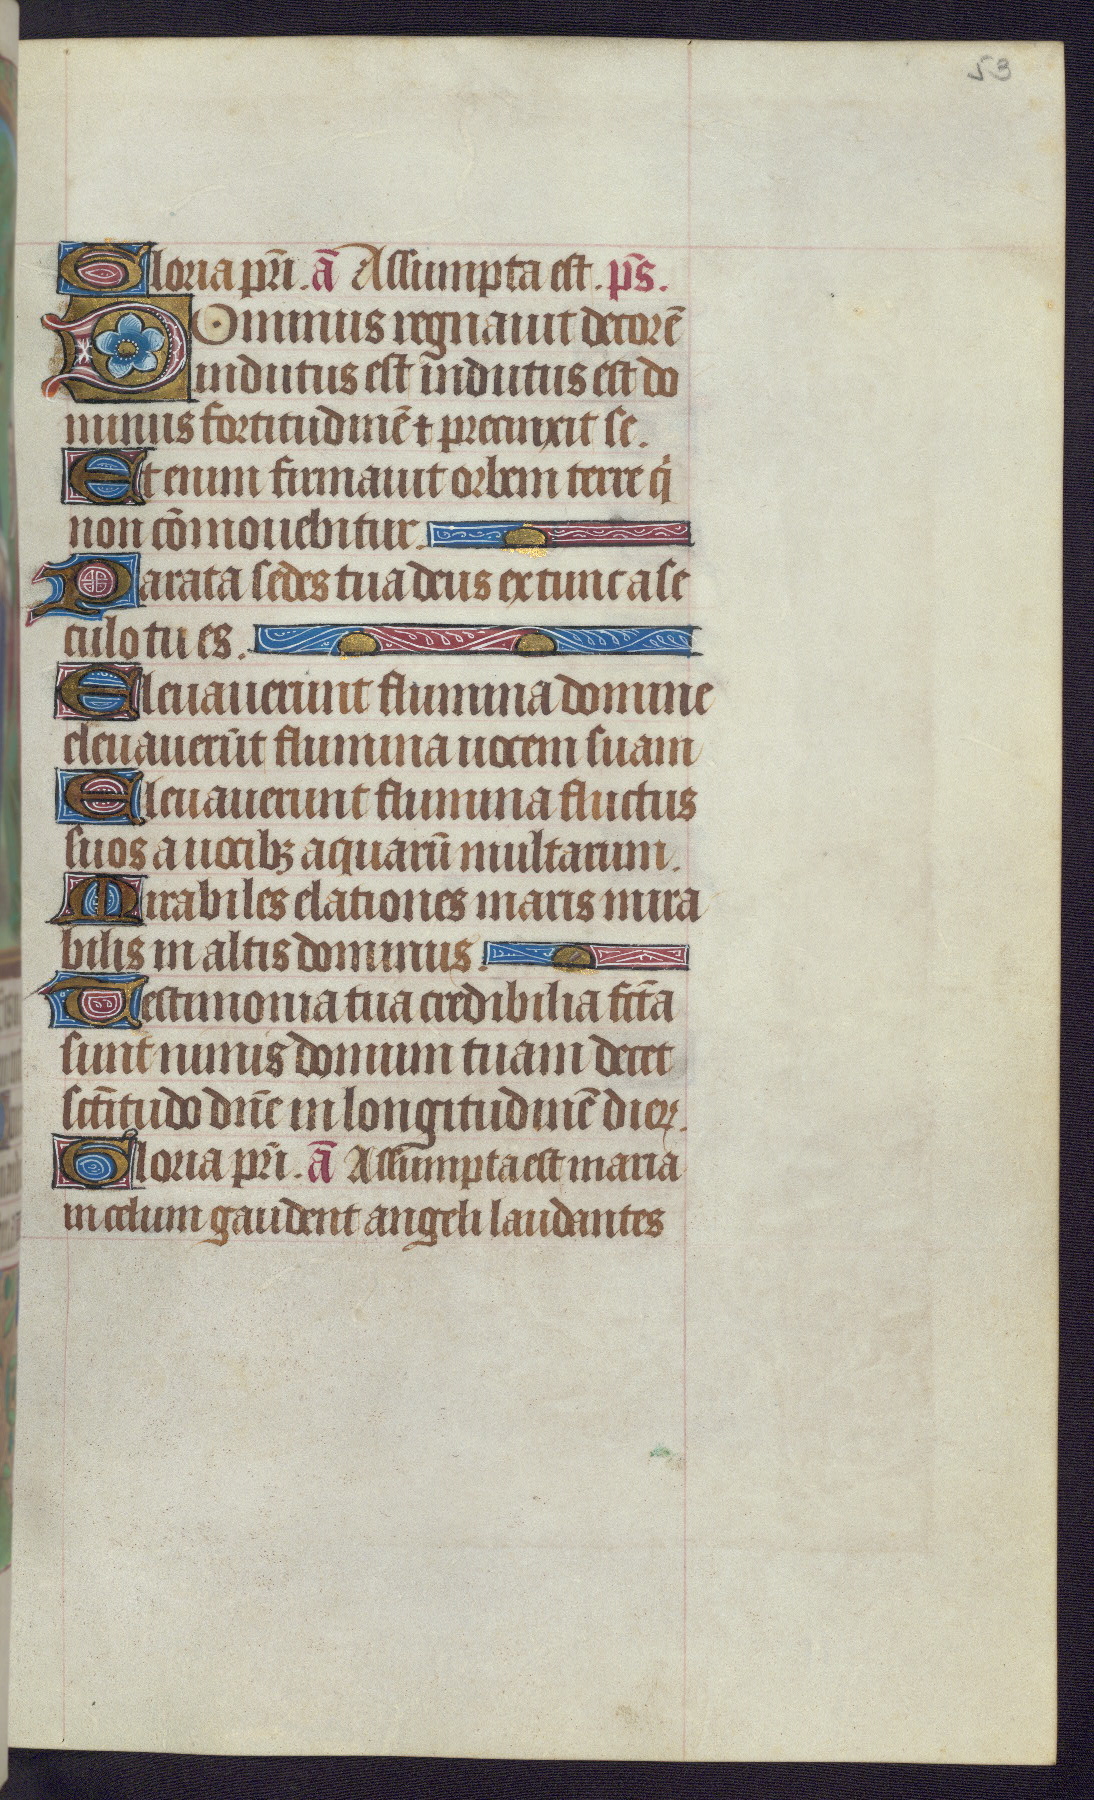 53
Gloria pr̄i. ā Assumpta est. p̄s.
Dominus regnauit decorē
indutus est indutus est do
minus fortitudinē ⁊ precinxit se.
Etenim firmauit orbem terre q̇
non cōmouebitur.
Parata sedes tua deus ex tunc a se
culo tu es.
Eleuauerunt flumina domine
eleuauerūt flumina uocem suam
Eleuauerunt flumina fluctus
suos a uocibꝫ aquarū multarum.
Mirabiles elationes maris mira
bilis in altis dominus.
Testimonia tua credibilia fc̄ta
sunt nimis domum tuam decet
sc̄titudo dn̄e in longitudinē dieꝝ.
Gloria pr̄i. ā Assūmpta est maria
in celum gaudent angeli laudantes